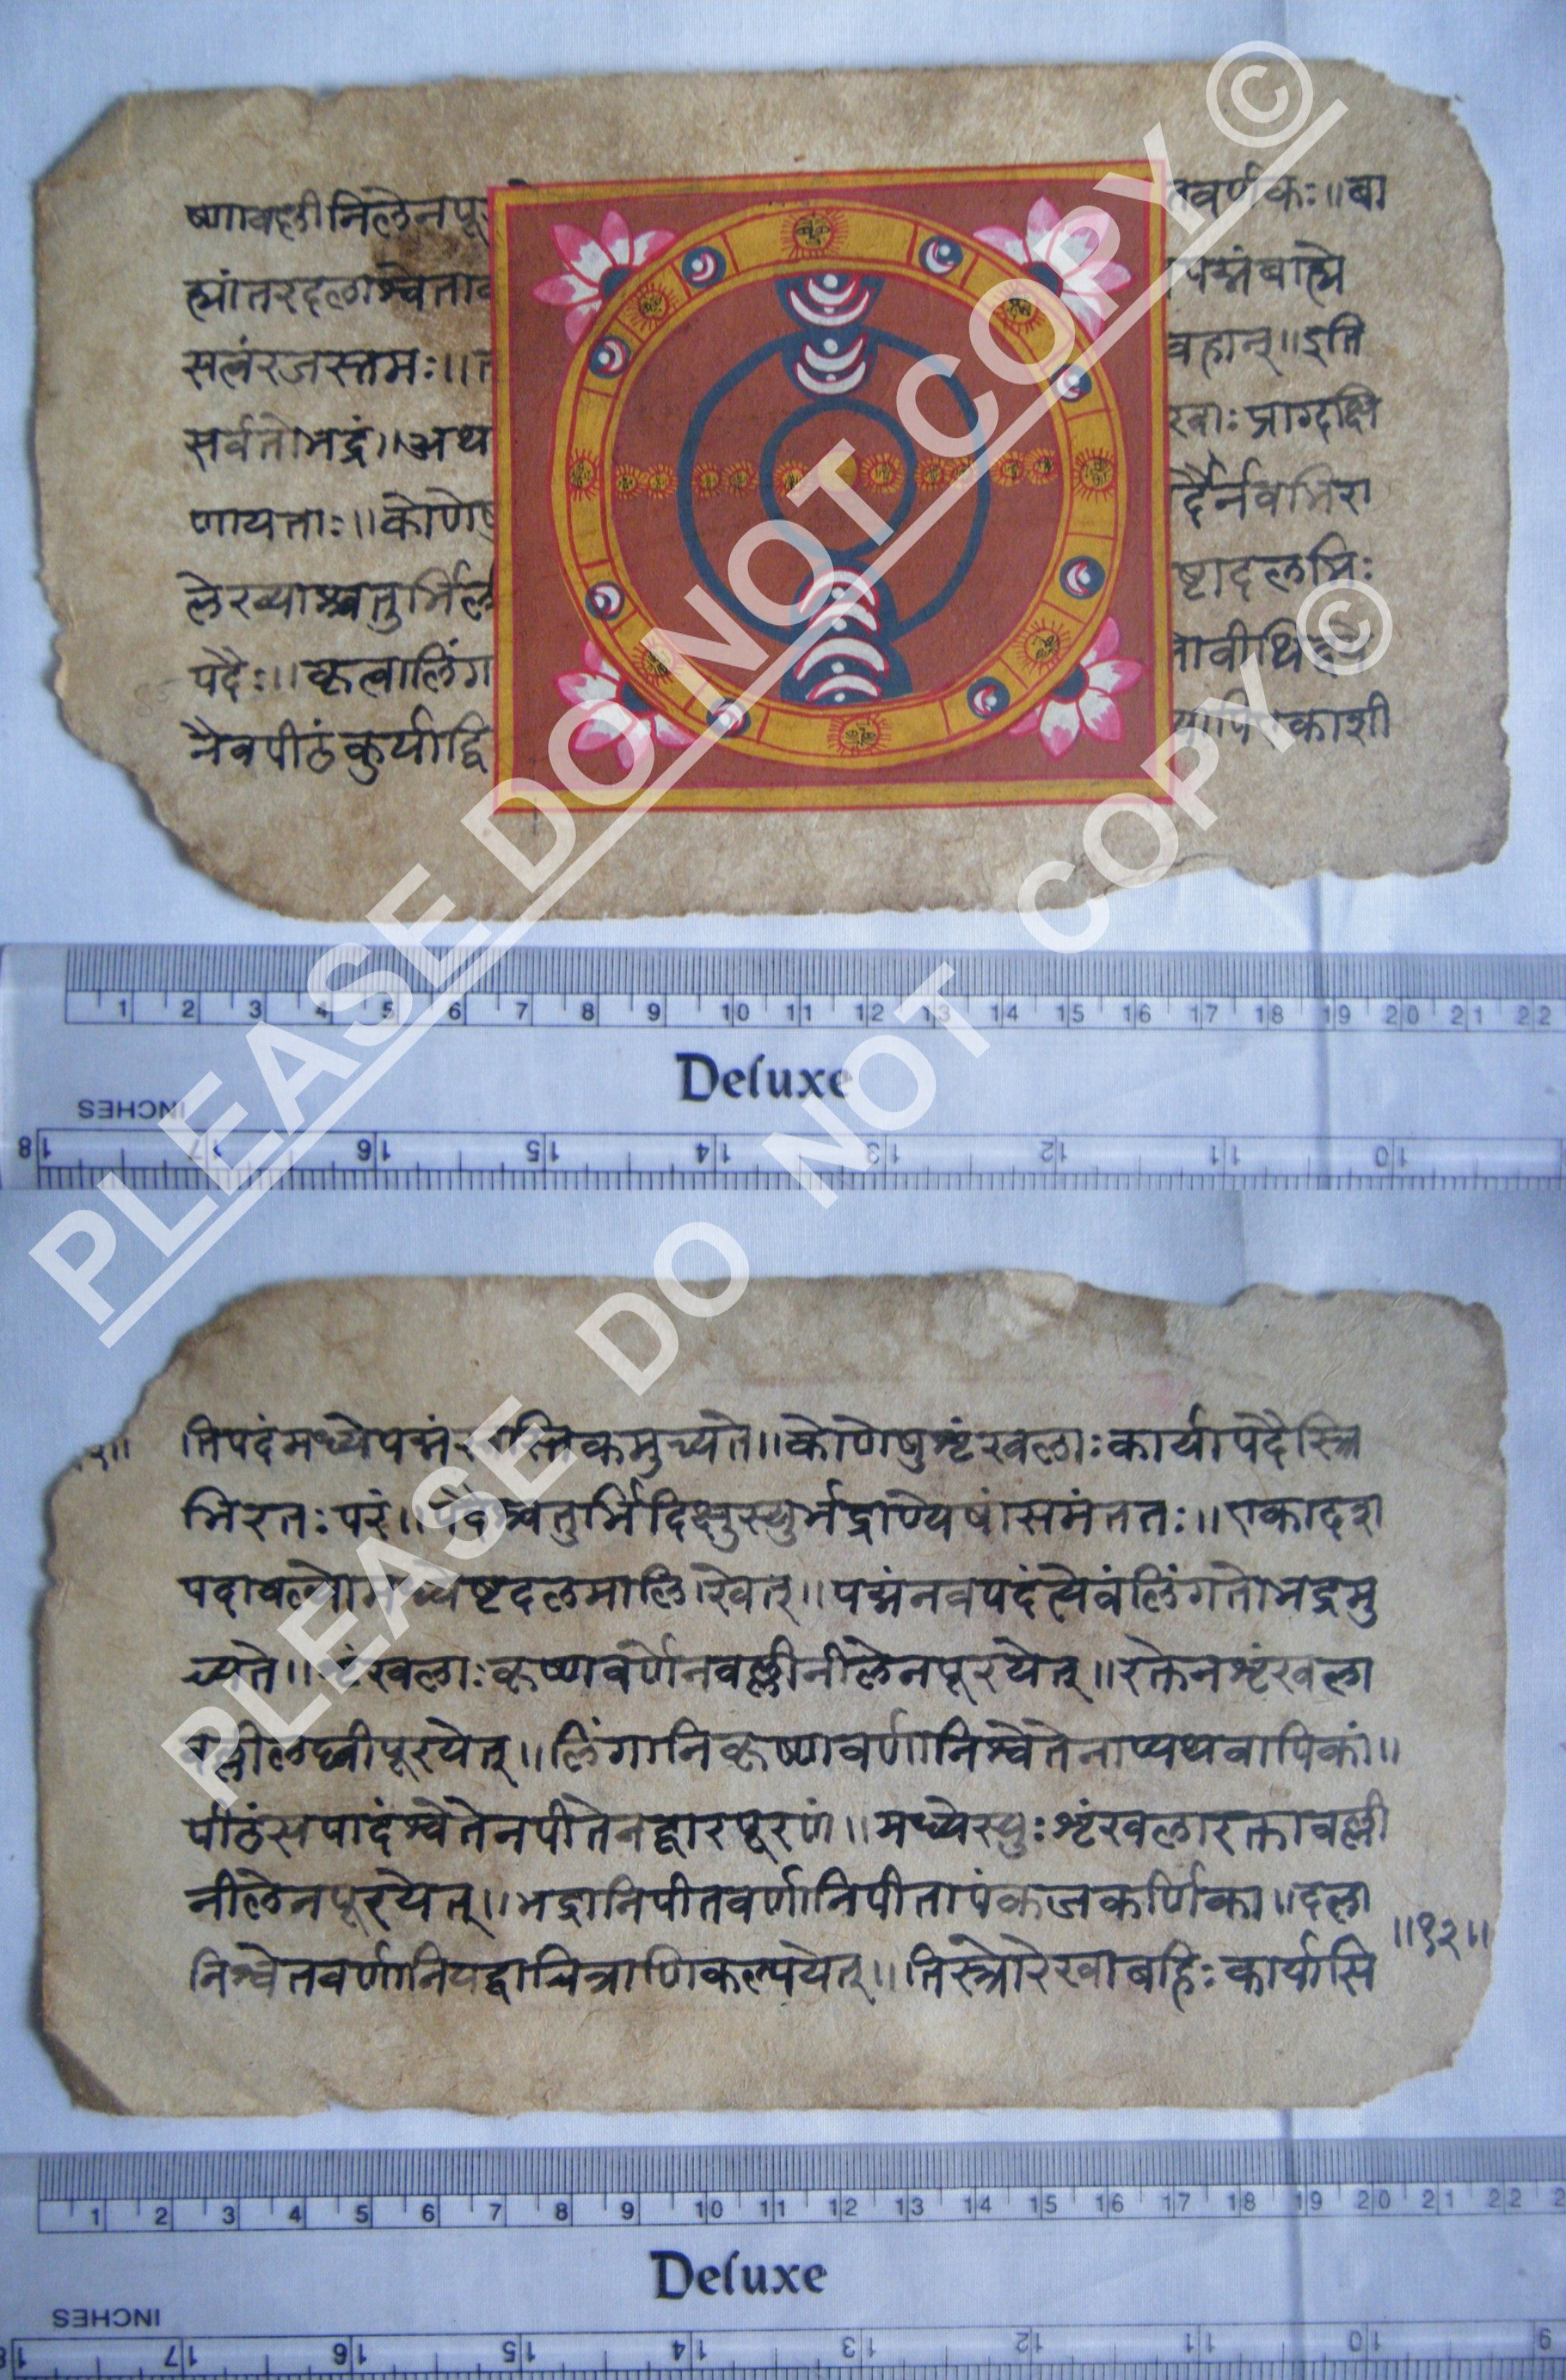 ष्णावल्लीनिलेनपूर
तवर्णकः॥बा
ह्यांतरदलाश्वेता
पद्मंबाह्ये
सत्वंरजस्तमः॥
वहान्॥इति
सर्वतोभद्रं॥अथ
रवाःप्राग्दक्षि
णायताः॥कोणेषु
र्दैर्नवभिरा
लेख्याश्चतुर्भिर्ल
ष्टादलभिः
पदैः॥कृत्वालिंग
नैवपीठंकुर्याद्वि
काशी
PLEASE DO NOT COPY ©
PLEASE DO NOT COPY ©
1 2 3 4 5 6 7 8 9 10 11 12 13 14 15 16 17 18 19 20 21 22
Deluxe
INCHES
18 17 16 15 14 13 12 11 10
तिपदंमध्येपद्मं कमुच्यते॥कोणेषुशृंखलाःकार्यापदैस्त्रि
भिरतःपरं॥पदैश्चतुर्भिर्दिक्षुस्युर्भद्राण्येषांसमंततः॥एकादश
पदावल्यो ष्टदलमालिखेत्॥पद्मंनवपदंत्येवंलिंगतोभद्रमु
च्यते॥शृंखलाःकृष्णवर्णेनवल्लीनीलेनपूरयेत्॥रक्तेनशृंखला
वल्लीलघ्वीपूरयेत्॥लिंगानिकृष्णवर्णानिश्वेतेनाप्यथवापिकां॥
पीठंसपादंश्वेतेनपीतेनद्वारपूरणं॥मध्येस्युःशृंखलारक्तावल्ली
नीलेनपूरयेत्॥भद्रानिपीतवर्णानिपीतापंकजकर्णिका॥दला
निश्वेतवर्णानियद्वाचित्राणिकल्पयेत्॥तिस्त्रोरेखाबहिःकार्यासि
॥१२॥
1 2 3 4 5 6 7 8 9 10 11 12 13 14 15 16 17 18 19 20 21 22
Deluxe
INCHES
17 16 15 14 13 12 11 10 9